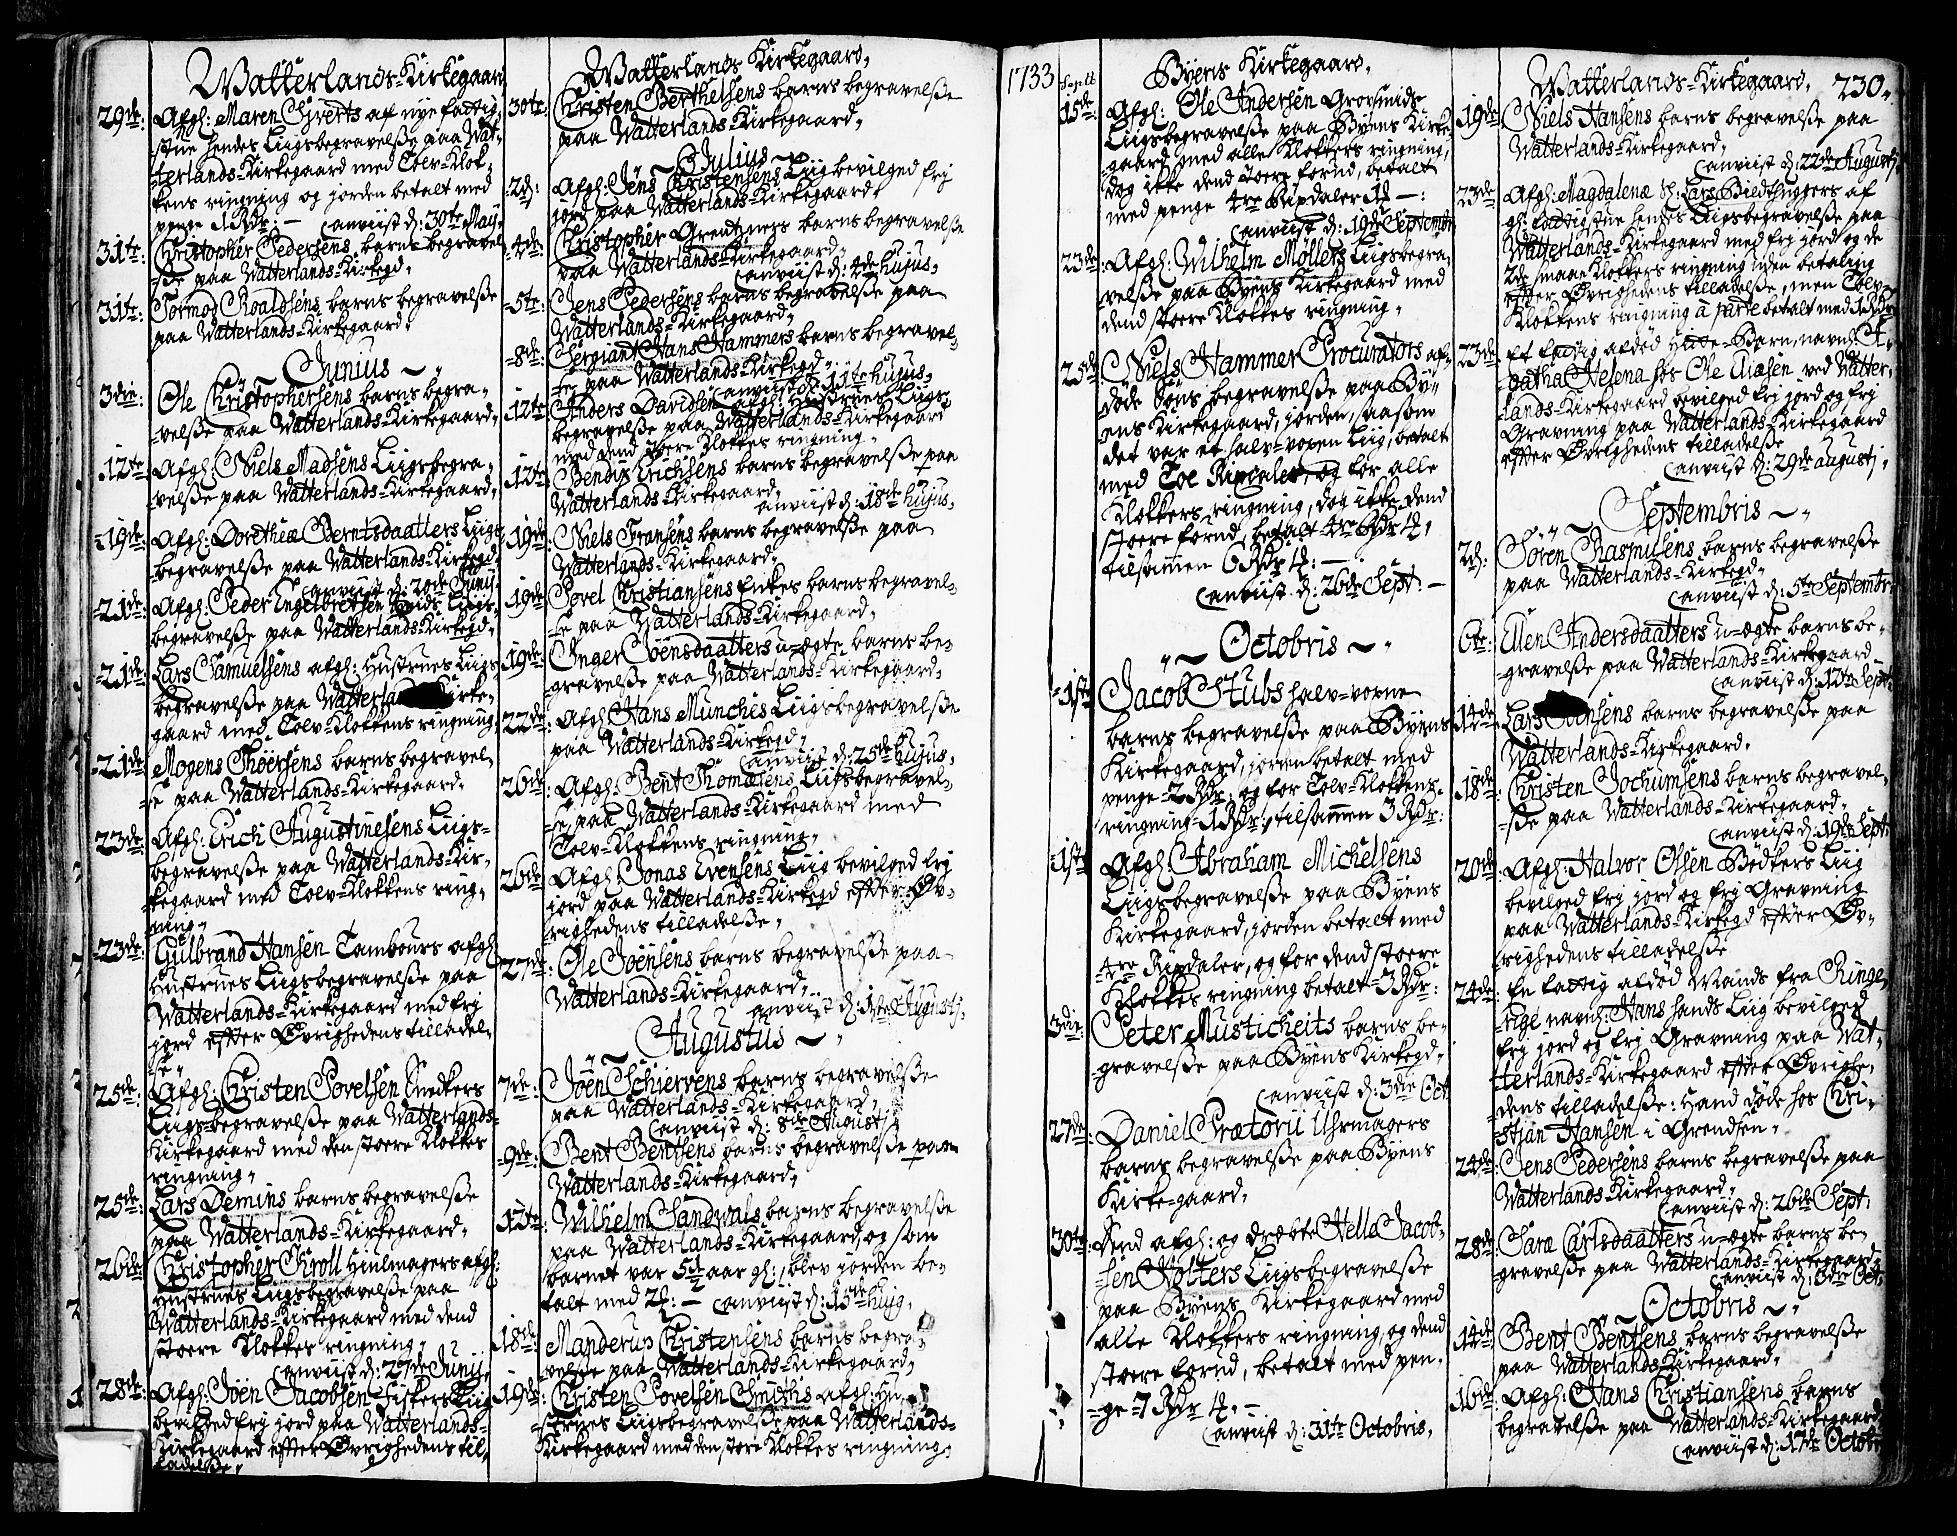 Watterlands-Kirkegaard
29de: Afgl: Maren Siverts af nye fattig-
stue hendes Liigsbegravelsße paa Wat-
terlands-Kirkegaard med Tolv-Klok-
kens ringning og jorden betalt med
penge 1 Rdr: — anviist d: 30te May.
31te: Christopher Pedersens barns begravel-
ße paa Watterlands-Kirkegd.
31te: Tormod Roaldsens barns begravelsße
paa Watterlands-Kirkegaard.
Junius
3die: Ole Christophersens barns begra-
velsße paa Watterlands-Kirkegaard.
12te: Afgl: Niels Madsens Liigsbegra-
velsße paa Watterlands-Kirkegaard.
19de: Afgl: Dorotheæ Berntsdaatters Liigs
begravelsße paa Watterlands-Kirkegd.
anviist d: 20de Junij
21de: Afgl: Peder Ingelbretsen Liigs-
begravelsße paa Watterlands-Kirkegd.
21de: Lars Samuelsens afgl: Hustrues Liigs
begravelsße paa Watterlands-Kirke-
gaard med Tolv-Klokkens ringning.
21de: Mogens Thoersens barns begravel-
ße paa Watterlands-Kirkegaard.
23de: Afgl: Erich Augustinesens Liigs-
begravelsße paa Watterlands-Kir-
kegaard med Tolv-Klokkens ring-
ning.
23de: Gulbrand Hansen Tambours afgl:
Hustrues Liigsbegravelsße paa
Watterlands-Kirkegaard med frj
jord efter Øvrighedens tilladel-
ße.
25de: Afgl: Christen Povelsen Snedkers
Liigs-begravelsße paa Watterlands-
Kirkegaard med den stoere Klokkes
ringning.
25de: Lars Demins barns begravelsße
paa Watterlands-Kirkegaard.
26de: Christopher Kroll Hiulmagers afgl:
Hustrues Liigsbegravelsße paa
Watterlands-Kirkegaard med dend
stoere Klokkes ringning.
anviist d: 27de Junij.
28de: Afgl: Joen Jacobsen Fiskers Liig
bevilged frj jord paa Watterlands-
Kirkegaard efter Øvrighedens til-
ladelße.
Watterlands Kirkegaard.
30te: Christen Berthelsens barns begravelsße
paa Watterlands-Kirkegaard.
Julius
2d: Afgl: Jens Christensens Liig bevilged frj
jord paa Watterlands-Kirkegaard.
4de: Christopher Greutzners barns begravelsße
paa Watterlands-Kirkegaard.
anviist d: 4de hujus.
5te: Jens Pedersens barns begravelsße paa
Watterlands-Kirkegaard.
8de: Sergiant Hans Hammers barns begravel-
ße paa Watterlands-Kirkegd.
anviist d: 11te hujus.
12te: Anders Davidsen afgl: Hustrues Liigs
begravelsße paa Watterlands-Kirkegaard
med dend stoere Klokkes ringning.
12te: Bendix Erichsens barns begravelsße paa
Watterlands-Kirkegaard.
anviist d: 18de hujus.
19de: Niels Fransens barns begravelsße paa
Watterlands-Kirkegaard.
19de: Povel Christiansens Enkes barns begravel-
ße paa Watterlands-Kirkegaard.
19de: Inger Joensdaatters u-ægte barns be-
gravelsße paa Watterlands-Kirkegaard.
22de: Afgl: Hans Munches Liigsbegravelsße
paa Watterlands-Kirkegd.
anviist d: 25de hujus.
26de: Afgl: Bent Thomæsens Liigsbegravel-
ße paa Watterlands-Kirkegaard med
Tolv-Klokkens ringning.
26de: Afgl: Jonas Evensens Liig bevilged frj
jord paa Watterlands-Kirkegd efter Øv-
righedens tilladelsße.
27de: Ole Joensens barns begravelsße paa
Watterlands-Kirkegaard.
anviist d: 1ste Augustj.
Augustus
7de: Joen Schiervens barns begravelsße
paa Watterlands-Kirkegaard.
anviist d: 8de Augustj
9de: Bent Bentsens barns begravelsße paa
Watterlands-Kirkegaard.
12te: Wilhelm Sandwals barns begravelsße
paa Watterlands-Kirkegaard, og som
barnet var 5 1/2 aar gl:, blev jorden be-
talt med 2 — anviist d: 15de huj.
18de: Manderup Christensens barns begra-
velsße paa Watterlands-Kirkegaard.
19de: Christen Povelsen Smiths afgl: Hu-
strues Liigsbegravelsße paa Watterlands-
Kirkegaard med den store Klokkes ringning.
1733 Septt
Byens Kirkegaard.
15de: Afgl: Ole Andersen Grovsmids
Liigsbegravelsße paa Byens Kirke-
gaard, med alle Klokkers ringning,
dog ikke dend stoere fornd, betalt
med penge 4re Rixdaler —:
anviist d: 19de Septembr
23de: Afgl: Wilhelm Möllers Liigsbegra-
velsße paa Byens Kirkegaard med
dend stoere Klokkes ringning.
25de: Niels Hammer Procurators af-
døde Søns begravelsße paa By-
ens Kirkegaard, jorden, saasom
det var et halv-voxen Liig, betalt
med Toe Rixdaler, og for alle
Klokkers ringning, dog ikke dend
stoere fornd, betalt 4re Rdr
tilsamen 6 Rdr —
anviist d: 26de Sept: —
Octobris
1ste: Jacob Stubs halv-voxne
barns begravelsße paa Byens
Kirkegaard, jorden betalt med
penge 2 Rdr:, og for Tolv-Klokkens
ringning 1 Rdr:, tilsamen 3 Rdr:
1ste: Afgl: Abraham Michelsens
Liigsbegravelsße paa Byens
Kirkegaard, jorden betalt med
4re Rixdaler, og for dend stoere
Klokkes ringning betalt 3 Rdr:
3die: Peter Musticheits barns be-
gravelsße paa Byens Kirkegd.
anviist d: 3die Oct
27de: Daniel Prætorii Uhrmagers
barns begravelsße paa Byens
Kirke-gaard.
30te: Dend afgl: og dræbte Helle Jacob-
sen Wolters Liigsbegravelsße
paa Byens Kirkegaard med
alle Klokkers ringning, og dend
stoere fornd, betalt med pen-
ge 7 Rdr —
anviist d: 31te Octobris.
Watterlands-Kirkegaard. 230.
19de: Niels Hansens barns begravelsße paa
Watterlands-Kirkegaard.
anviist d: 22de Augustj
23de: Afgl: Magdalenæ Sl: Lars Biedthuggers af
gl: fattigstue hendes Liigsbegravelsße paa
Watterlands-Kirkegaard med frj jord og de
2de smaa Klokkers ringning uden betaling
efter Øvrighedens tilladelsße, men Tolv-
Klokkens ringning à parte betalt med 1 Rdr
23de: Et fattig afdød Hitte-Barn, navnl: A-
gatha Helena hos Ole Niæsen ved Watter-
lands-Kirkegaard bevilged frj jord og frj
Gravning paa Watterlands-Kirkegaard
efter Øvrighedens tilladelsße
anviist d: 29de augustj.
Septembris
2d: Søren Rasmusens barns begravelsße
paa Watterlands-Kirkegd.
anviist d: 5te Septembr:
6te: Ellen Andersdaatters u-ægte barns be-
gravelsße paa Watterlands-Kirkegaard
anviist d: 12te Sept:
14de: Lars Joensens barns begravelsße paa
Watterlands-Kirkegaard.
18de: Christen Jochumsens barns begravel-
ße paa Watterlands-Kirkegaard.
anviist d: 19de Sept:
20de: Afgl: Halvor Olsen Bødkers Liig
bevilged frj jord og frj Gravning
paa Watterlands-Kirkegd efter Øv-
righedens tilladelsße
24de: En fattig afdød Mands fra Ringe-
rige navnl: Hans hands Liig bevilged
frj jord og frj Gravning paa Wat-
terlands-Kirkegaard efter Øvrighe-
dens tilladelße: Hand døde hos Chri-
stian Hansen i Grendsen.
24de: Jens Pedersens barns begravelsße paa
Watterlands-Kirkegaard.
anviist d: 26de Sept:
28de: Saræ Carlsdaatters u-ægte barns be-
gravelsße paa Watterlands-Kirkegaard
anviist d: 3die Oct:
Octobris
14de: Bent Bentsens barns begravelsße
paa Watterlands-Kirkegaard.
16de: Afgl: Hans Christiansens barns
begravelsße paa Watterlands-Kirkegaard
anviist d: 17de Octobr